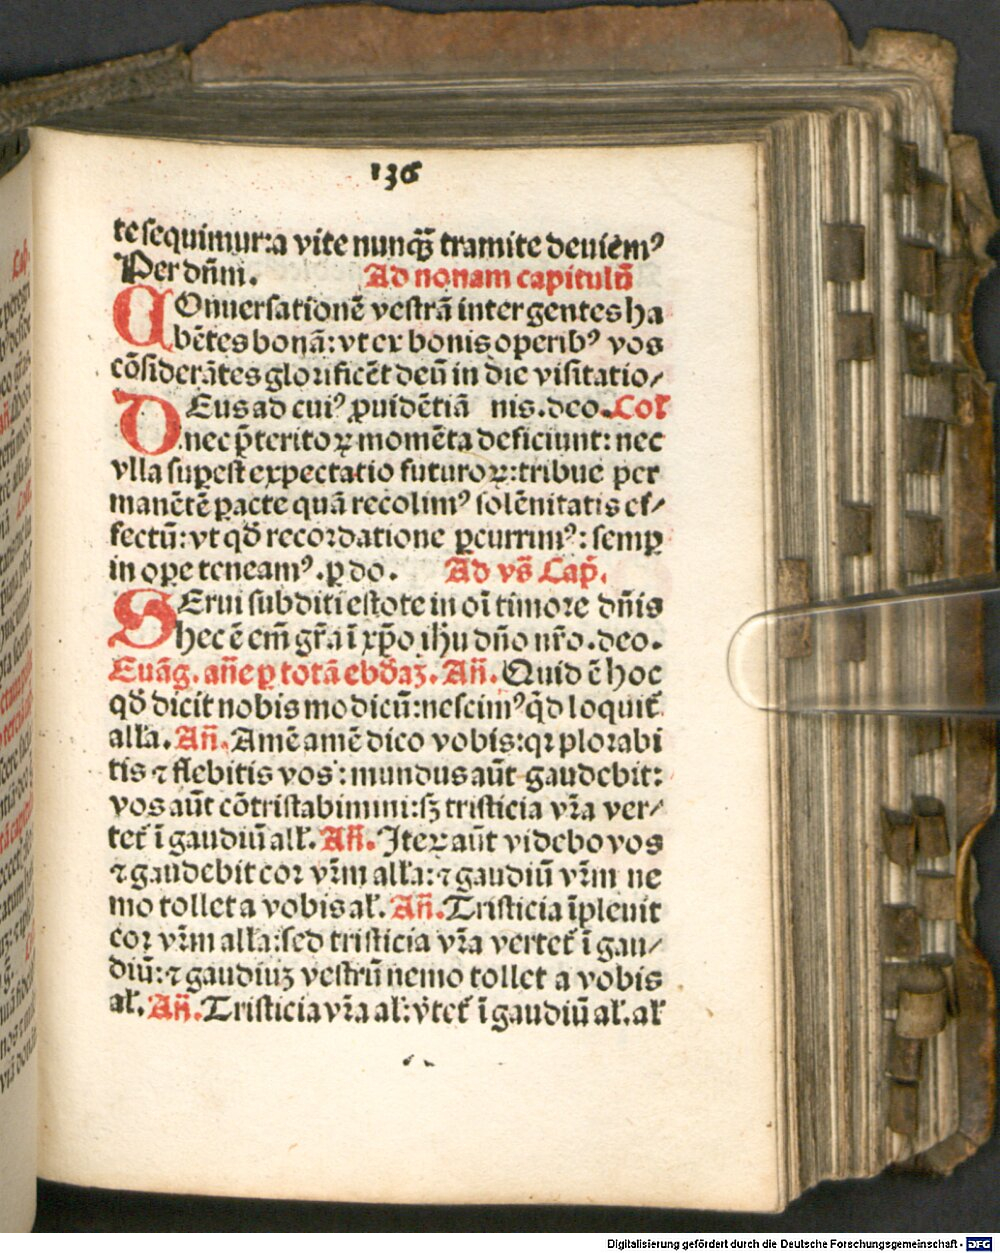 136
te sequimur: a vite nunqȝ̃ tramite deuiemꝰ
Per dñm. Ad nonam capitulū
COnuersationē vestrā inter gentes ha
bētes bonā: vt ex bonis operibꝰ vos
cōsiderātes glorificēt deū in die visitatio⸗
DEus ad cuiꝰ ꝓuidētiā nis. deo. Coll
nec p̄teritoꝝ momēta deficiunt: nec
vlla suꝑest expectatio futuroꝝ: tribue per
manētē ꝑacte quā recolimꝰ solēnitatis ef⸗
fectū: vt qđ recordatione ꝑcurrimꝰ: semꝑ
in oꝑe teneamꝰ. ꝑ do. Ad vs̄ Cap̄.
SErui subditi estote in oī timore dñis
hec ē em̄ gr̄a ī xp̄o ihū dño nr̄o. deo.
Euāg. añe ꝑ totā ebđaȝ. Añ. Quid ē hoc
qđ dicit nobis modicū: nescimꝰ qđ loquit᷑
alła. Añ. Amē amē dico vobis: qꝛ plorabi
tis ⁊ flebitis vos: mundus aūt gaudebit:
vos aūt cōtristabimini: sꝫ tristicia vr̄a ver⸗
tet᷑ ī gaudiū ałł. Añ. Iteꝝ aūt videbo vos
⁊ gaudebit cor vr̄m alła: ⁊ gaudiū vr̄m ne
mo tollet a vobis ał. Añ. Tristicia īpleuit
cor vr̄m alła: sed tristicia vr̄a vertet᷑ ī gau⸗
diū: ⁊ gaudiuȝ vestrū nemo tollet a vobis
ał. Añ. Tristicia vr̄a ał: v̓tet᷑ ī gaudiū ał. ał
Digitalisierung gefördert durch die Deutsche Forschungsgemeinschaft - DFG